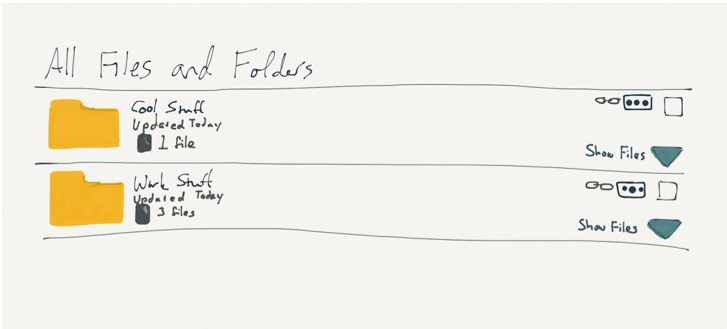 All Files and Folders
Cool Stuff
Updated Today
1 file
Show Files
Work Stuff
Updated Today
3 files
Show Files